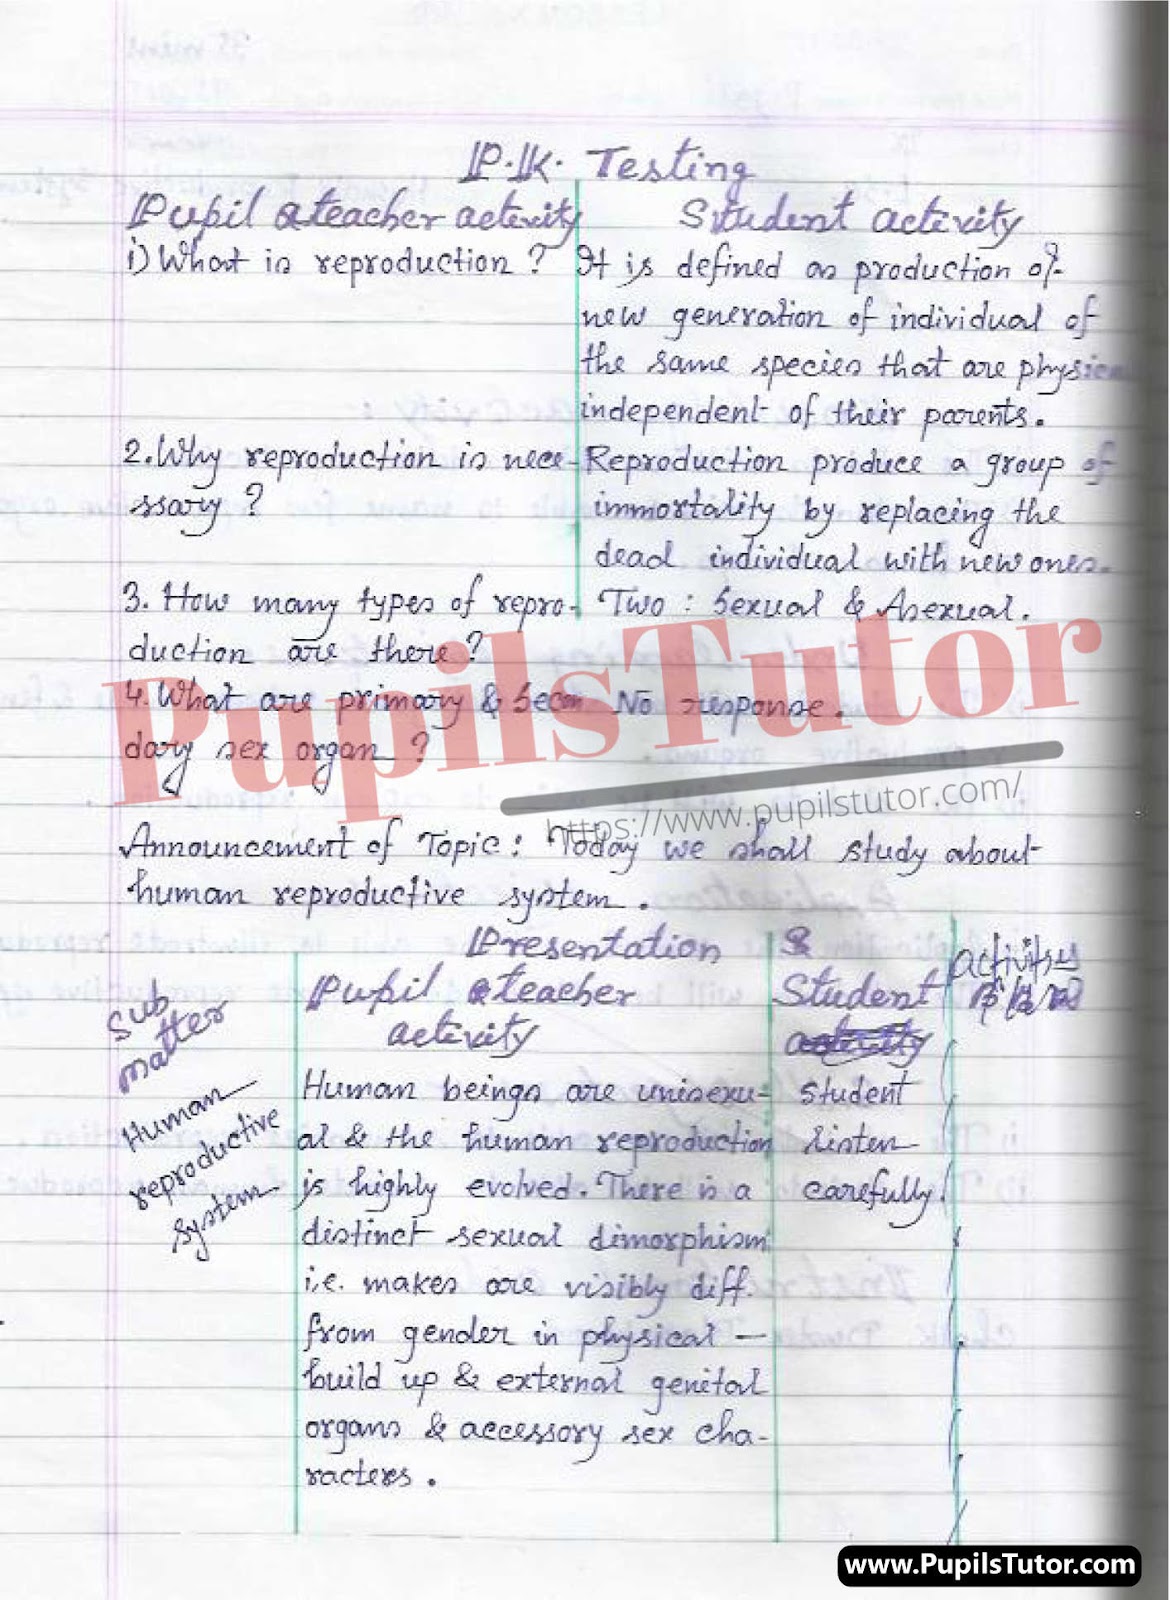 P.K. Testing
Pupil teacher activity
Student activity
i) What is reproduction?
It is defined as production of
new generation of individual of
the same species that are physica
independent of their parents.
2. Why reproduction is nece-
ssary?
Reproduction produce a group of
immortality by replacing the
dead individual with new ones.
3. How many types of repro-
duction are there?
Two : Sexual & Asexual.
4. What are primary & Secon
dary sex organ?
No response.
PupilsTutor
https://www.pupilstutor.com/
Announcement of Topic : Today we shall study about
human reproductive system.
Presentation
Sub
matter
Pupil teacher
activity
&
Student
activity
Activities
Human
reproductive
system
Human beings are unisexu-
al & the human reproduction
is highly evolved. There is a
distinct sexual dimorphism
i.e. makes are visibly diff.
from gender in physical —
build up & external genital
organs & accessory sex cha-
racters.
Student
listen
carefully.
www.PupilsTutor.com